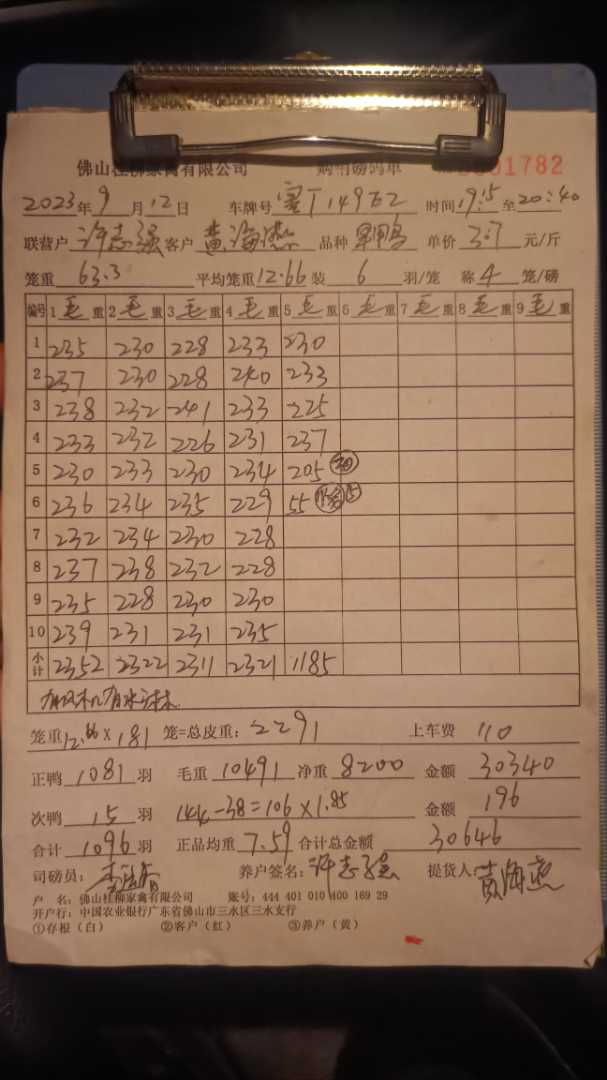 佛山桂柳家禽有限公司 购销磅码单 1782
2023年9月12日 车牌号 14962 时间19:15至20:40
联营户 许志强 客户 黄海燕 品种 单价 3.7 元/斤
笼重 63.3 平均笼重 12.66 装 6 羽/笼 称 4 笼/磅
编号 1毛重 2毛重 3毛重 4毛重 5毛重 6毛重 7毛重 8毛重 9毛重
1 235 230 228 233 230
2 237 230 228 240 233
3 238 232 241 233 225
4 233 232 226 231 237
5 230 233 230 234 205 30
6 236 234 235 229 55
7 232 234 230 228
8 237 238 232 228
9 235 228 230 230
10 239 231 231 235
小计 2352 2322 2311 2321 1185
笼重 12.66 × 181 笼=总皮重: 2291 上车费 110
正鸭 1081 羽 毛重 10491 净重 8200 金额 30340
次鸭 15 羽 144-38=106×1.85 金额 196
合计 1096 羽 正品均重 7.59 合计总金额 30646
司磅员: 养户签名: 许志强 提货人: 黄海燕
户 名: 佛山桂柳家禽有限公司 账号: 444 401 010 400 169 29
开户行: 中国农业银行广东省佛山市三水区三水支行
①存根(白) ②客户(红) ③养户(黄)